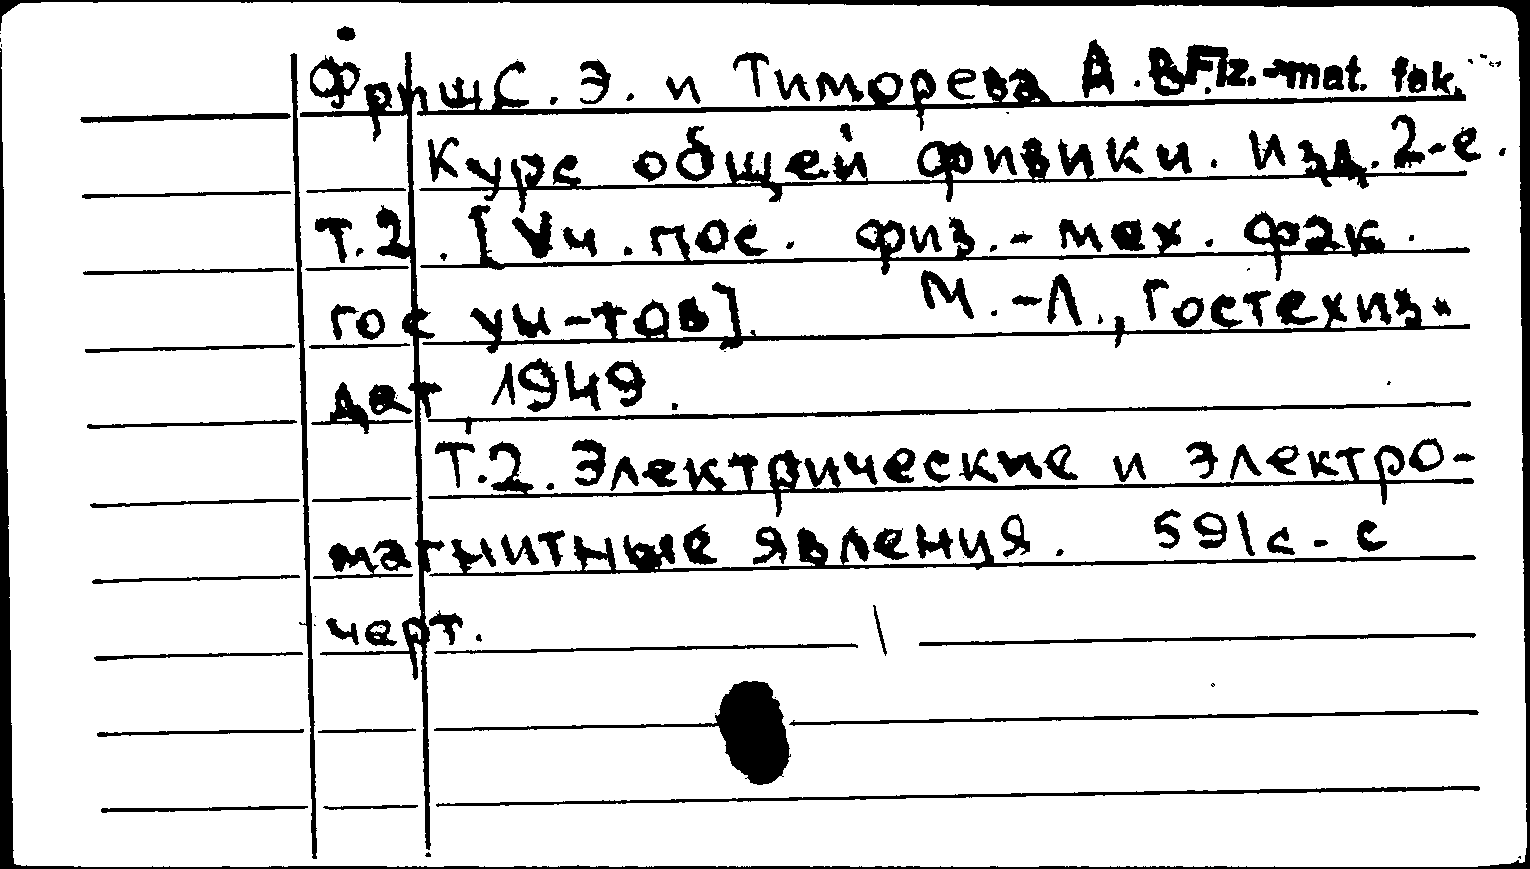 Фриш С. Э. и Тиморева А. В. Fiz.-mat. fak.
Курс общей физики. Изд. 2-е.
Т. 2. [Уч. пос. физ.-мех. фак.
гос ун-тов]. М.-Л., Гостехиз-
дат, 1949.
Т. 2. Электрические и электро-
магнитные явления. 591 с. с
черт.